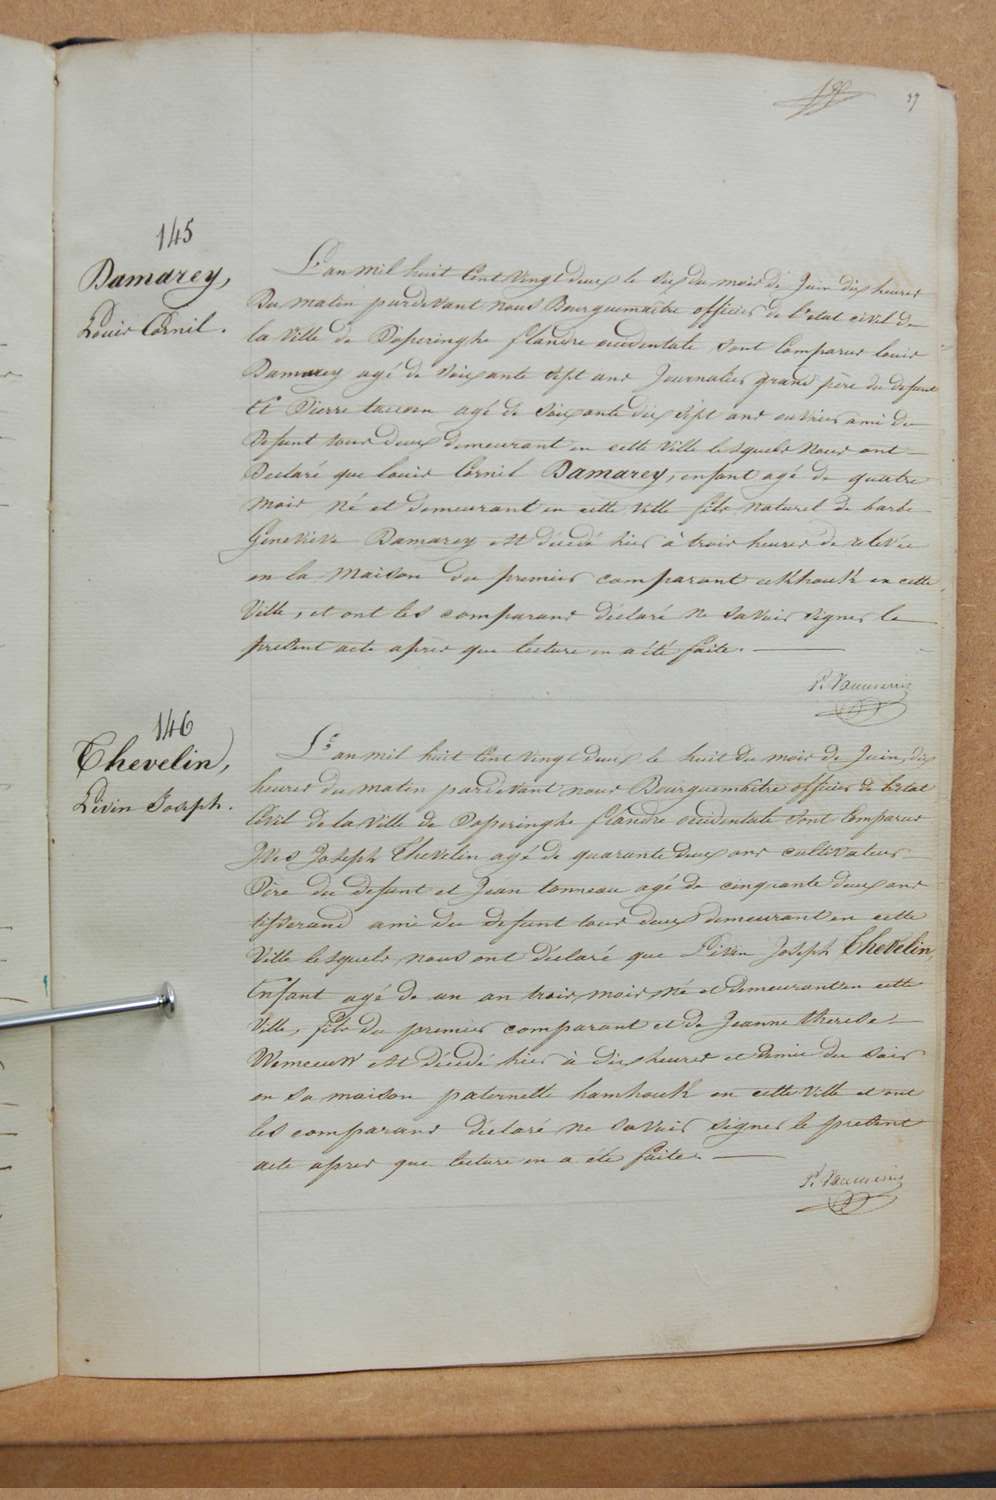 37
145
Damarey,
Louis Cornil.
L'an mil huit Cent vingt deux le six du mois de Juin dix heures
Du matin pardevant nous Bourguemaitre officier de l'etat civil de
la Ville de Poperinghe flandre occidentale sont Comparus louis
Damarey agé de soixante sept ans Journalier grand père du defunt
Et Pierre taccoen agé de soixante dix sept ans ouvrier ami du
Defunt tous deux demeurant en cette Ville lesquels Nous ont
Declaré que louis Cornil Damarey, enfant agé de quatre
mois né et demeurant en cette Ville fils naturel de barbe
Geneviève Damarey est décédé hier à trois heures de relevée
en la Maison du premier comparant en cette
Ville, et ont les comparans déclaré ne savoir signer le
present acte aprés que lecture en a été faite.
146
Thevelin,
Livin Joseph.
L'an mil huit Cent vingt deux le huit du mois de Juin, dix
heures du matin pardevant nous Bourguemaitre officier de l'etat
Civil de la Ville de Poperinghe flandre occidentale sont Comparus
Yves Joseph Thevelin agé de quarante deux ans cultivateur
Père du defunt et Jean tonneau agé de cinquante deux ans
tisserand ami du defunt tous deux demeurant en cette
Ville lesquels nous ont déclaré que Livin Joseph Thevelin,
Enfant agé de un an trois mois né et demeurant en cette
Ville, fils du premier comparant et de Jeanne therese
est décédé hier à dix heures et demie du soir
en sa maison paternelle hamhouk en cette Ville et ont
les comparans déclaré ne savoir signer le present
acte aprés que lecture en a été faite.